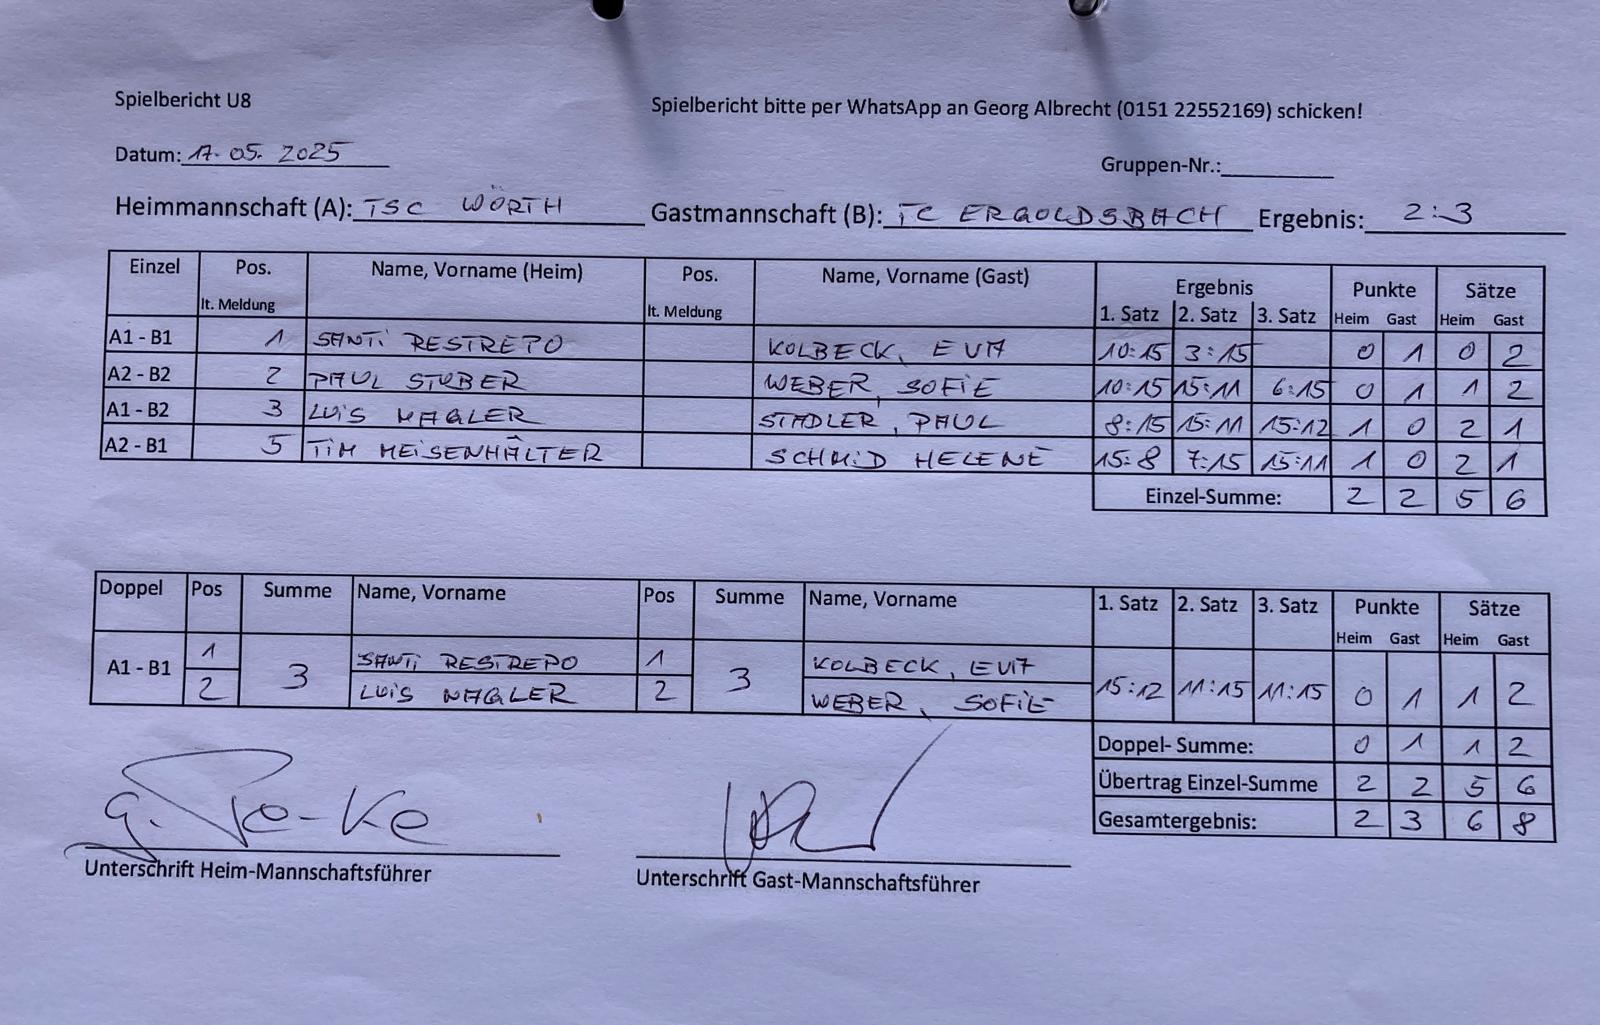 Spielbericht U8
Spielbericht bitte per WhatsApp an Georg Albrecht (0151 22552169) schicken!
Datum: 17.05.2025
Gruppen-Nr.:
Heimmannschaft (A): TSC WÖRTH Gastmannschaft (B): TC ERGOLDSBACH Ergebnis: 2:3
Einzel Pos. Name, Vorname (Heim) Pos. Name, Vorname (Gast) Ergebnis Punkte Sätze
lt. Meldung lt. Meldung 1. Satz 2. Satz 3. Satz Heim Gast Heim Gast
A1 - B1 1 SANTI RESTREPO KOLBECK, EVA 10:15 3:15 0 1 0 2
A2 - B2 2 PAUL STUBER WEBER, SOFIE 10:15 15:11 6:15 0 1 1 2
A1 - B2 3 LUIS NAGLER STADLER, PAUL 8:15 15:11 15:12 1 0 2 1
A2 - B1 5 TIM MEISENHÄLTER SCHMID HELENE 15:8 7:15 15:11 1 0 2 1
Einzel-Summe: 2 2 5 6
Doppel Pos Summe Name, Vorname Pos Summe Name, Vorname 1. Satz 2. Satz 3. Satz Punkte Sätze
Heim Gast Heim Gast
A1 - B1 1 3 SANTI RESTREPO 1 3 KOLBECK, EVA 15:12 11:15 11:15 0 1 1 2
2 LUIS NAGLER 2 WEBER, SOFIE
Doppel- Summe: 0 1 1 2
Übertrag Einzel-Summe 2 2 5 6
Gesamtergebnis: 2 3 6 8
Unterschrift Heim-Mannschaftsführer
Unterschrift Gast-Mannschaftsführer